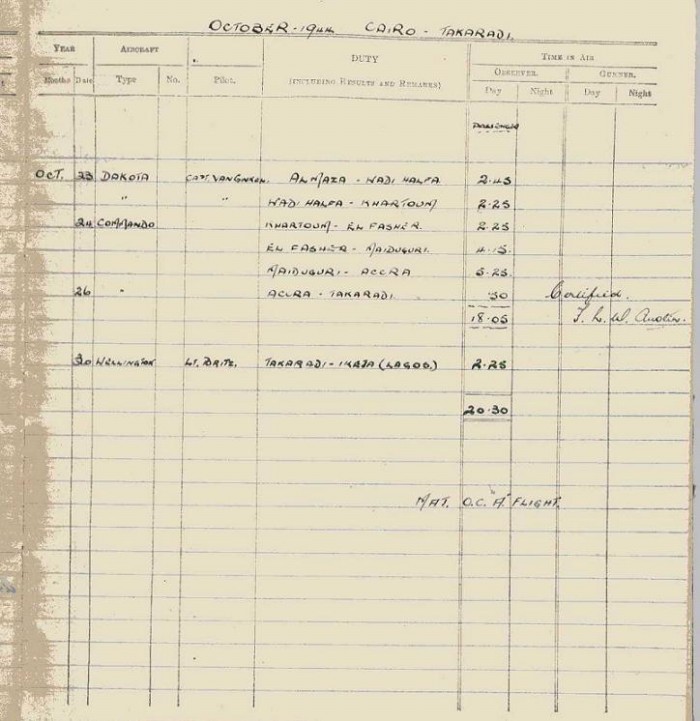 OCTOBER - 1944 CAIRO - TAKARADI.
YEAR AIRCRAFT DUTY TIME IN AIR
OBSERVER. GUNNER.
Months Date Type No. Pilot. (INCLUDING RESULTS AND REMARKS) Day Night Day Night
PASSENGER
OCT. 23 DAKOTA CAPT. ALMAZA - WADI HALFA 2.45
" " WADI HALFA - KHARTOUM 2.25
24 COMMANDO KHARTOUM - EL FASHER. 2.25
EL FASHER - MAIDUGURI. 4.15
MAIDUGURI - ACCRA 5.25
26 " ACCRA - TAKARADI. .50 Certified.
18.05 T. L. W. Austin.
30 WELLINGTON LT. BRITZ. TAKARADI - IKAJA (LAGOS.) 2.25
20.30
O.C. "A" FLIGHT.